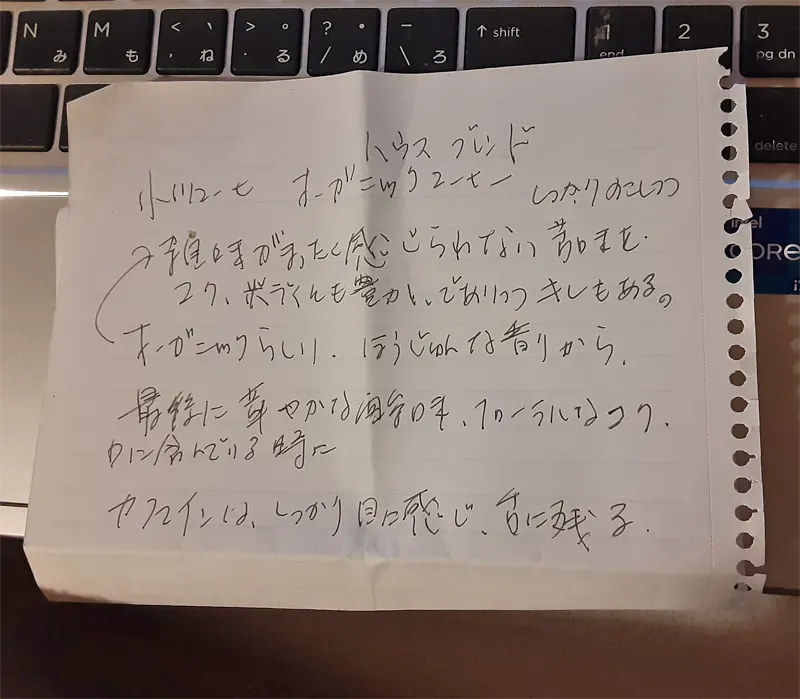 N み
M も
< 、 , ね
> 。 . る
? ・ / め
_ \ ろ
↑ shift
1 end
2
3 pg dn
delete
intel
CORE
ハウス ブレンド
小川コーヒー オーガニックコーヒー しっかりのこしつつ
雑味がまったく感じられない 苦味を
コク、ボディも豊か、でありつつ キレもある。
オーガニックらしい、ほうじゅんな香りから、
最後に 華やかな酸味、フローラルなコク、
口に含んでいる時に
カフェインは、しっかり目に感じ、舌に残る.